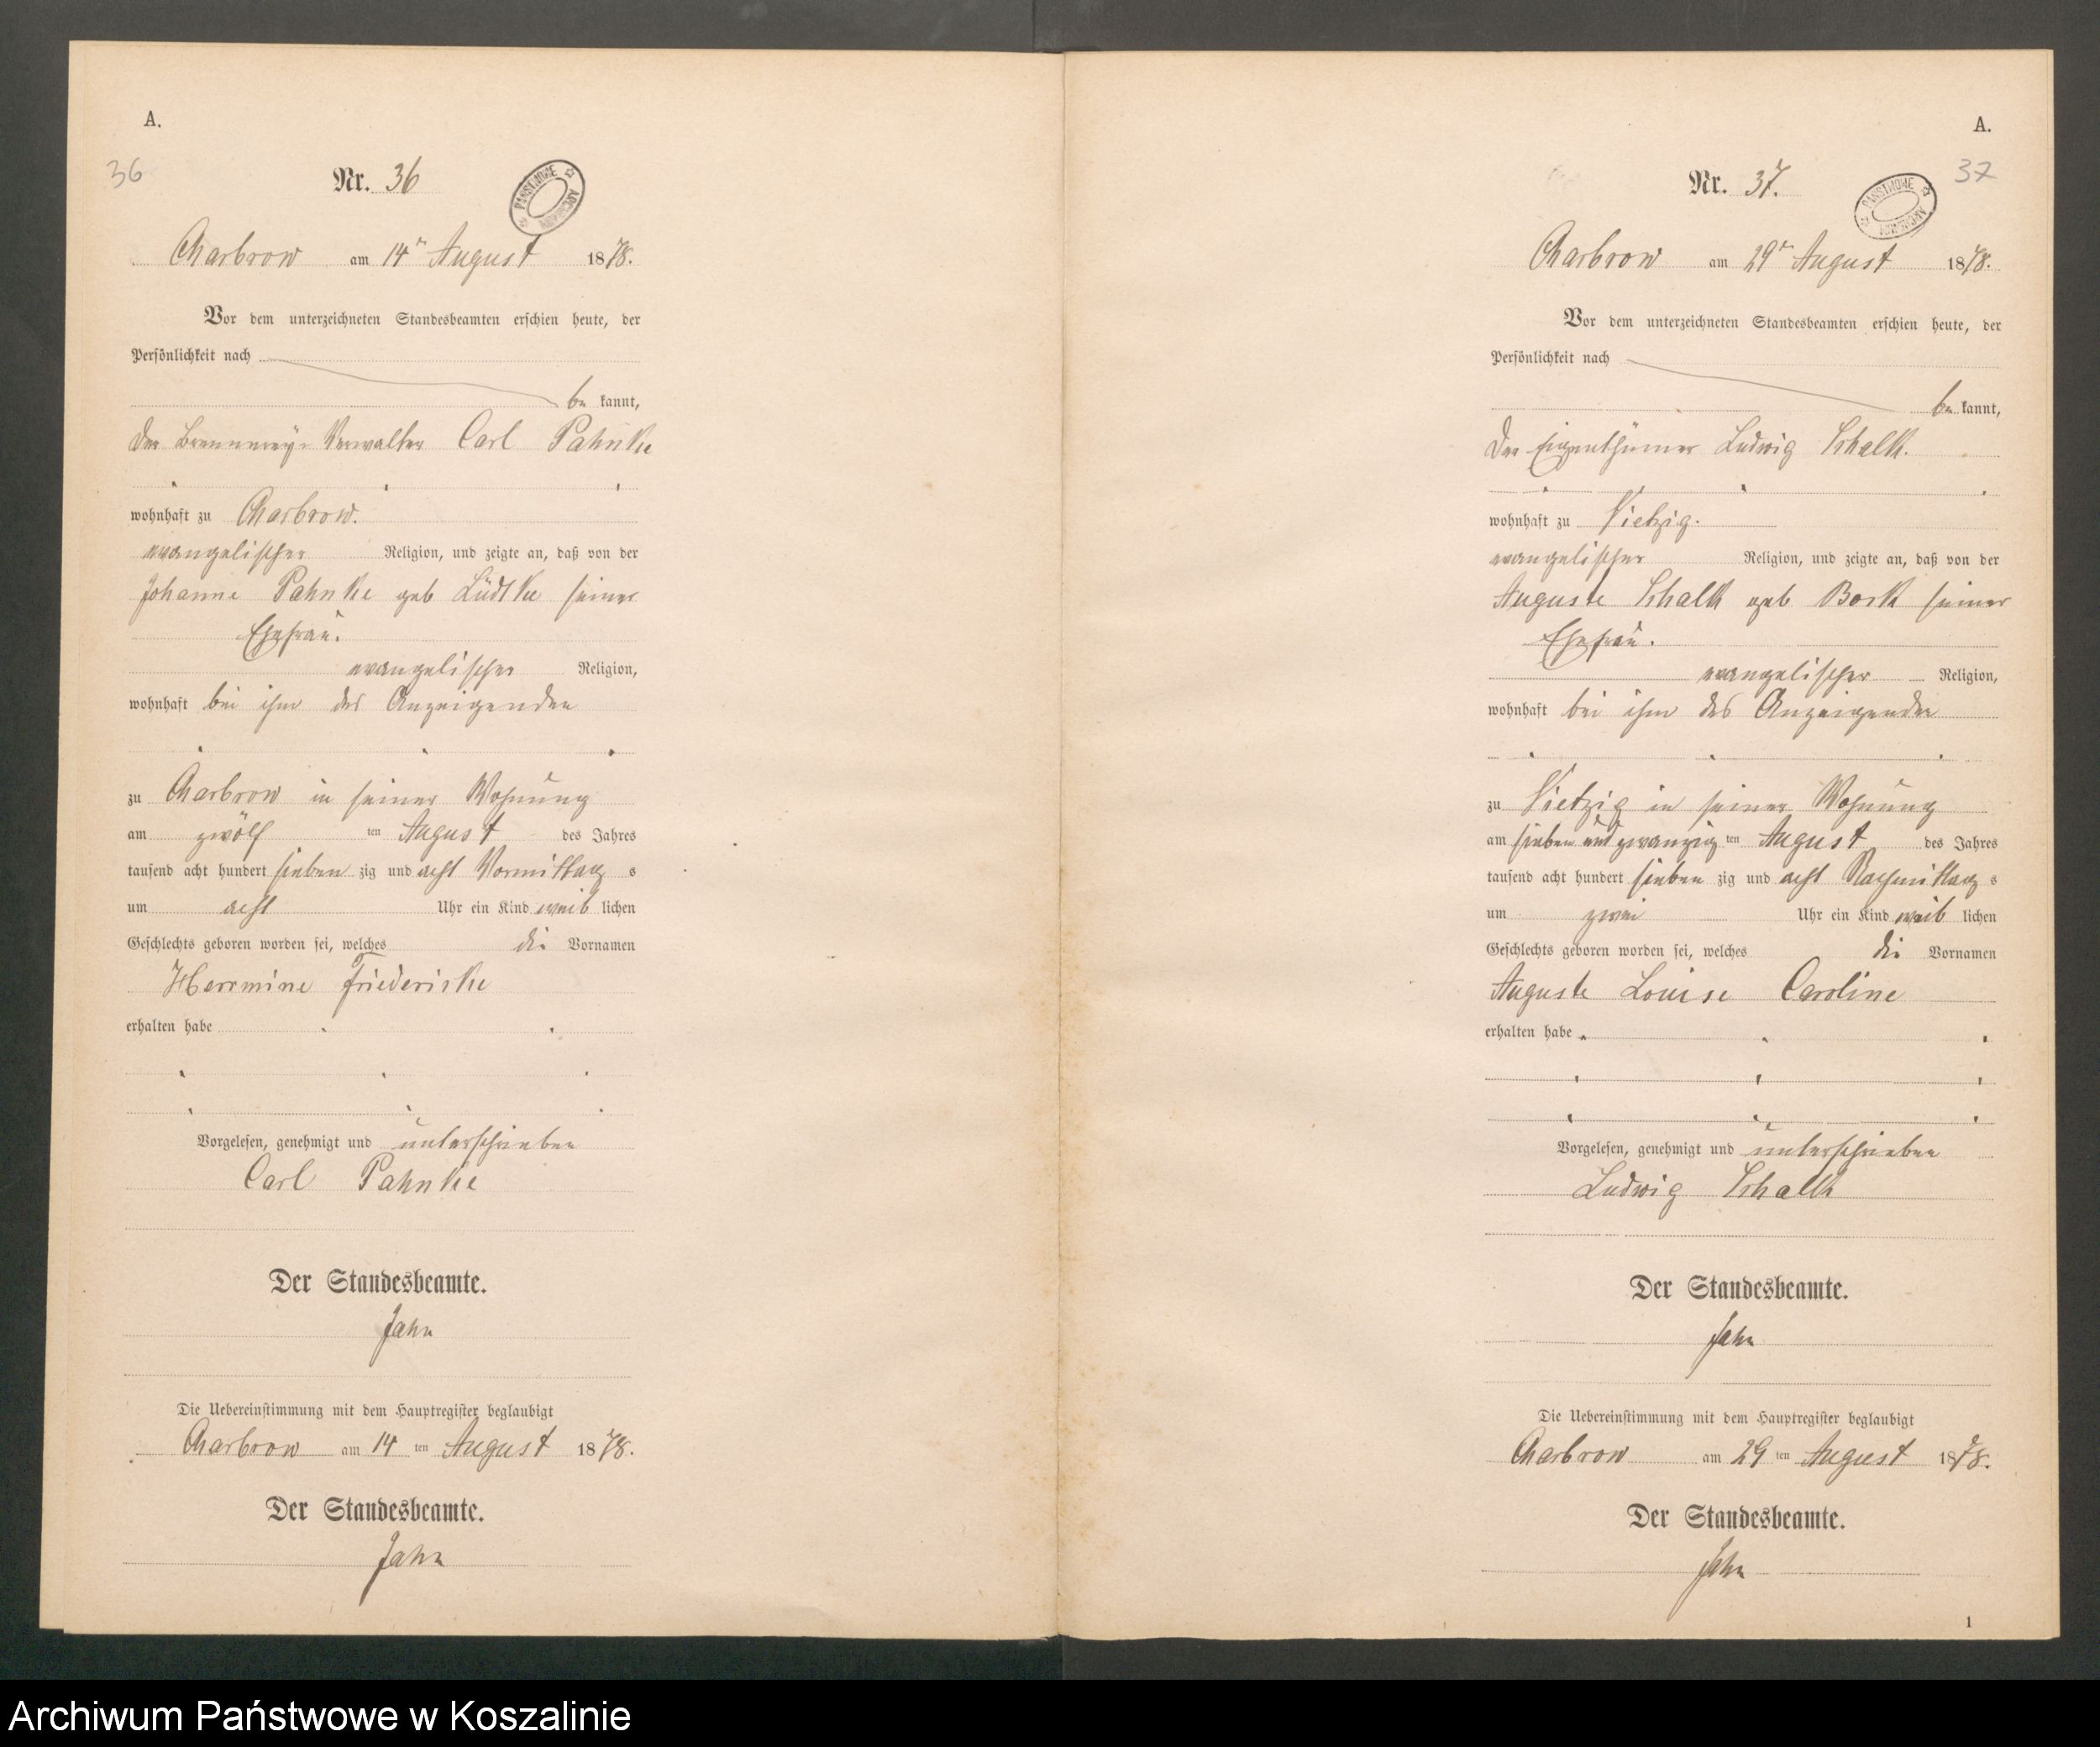 A.
36
Nr. 36
PAŃSTWOWE ARCHIWUM
Charbrow am 14n August 1878.
Vor dem unterzeichneten Standesbeamten erschien heute, der
Persönlichkeit nach
be kannt,
der Brennerey-Verwalter Carl Pahnke
wohnhaft zu Charbrow.
evangelischer Religion, und zeigte an, daß von der
Johanne Pahnke geb Lüdtke seiner
Ehefrau.
evangelischer Religion,
wohnhaft bei ihm des Anzeigenden
zu Charbrow in seiner Wohnung
am zwölf ten August des Jahres
tausend acht hundert sieben zig und acht Vormittag s
um acht Uhr ein Kind weib lichen
Geschlechts geboren worden sei, welches die Vornamen
Herrmine Friederike
erhalten habe
Vorgelesen, genehmigt und unterschrieben
Carl Pahnke
Der Standesbeamte.
Jahn
Die Uebereinstimmung mit dem Hauptregister beglaubigt
Charbrow am 14 ten August 1878.
Der Standesbeamte.
Jahn
A.
37
Nr. 37.
PAŃSTWOWE ARCHIWUM
Charbrow am 29n August 1878.
Vor dem unterzeichneten Standesbeamten erschien heute, der
Persönlichkeit nach
be kannt,
der Eigenthümer Ludwig Schalk.
wohnhaft zu Vietzig.
evangelischer Religion, und zeigte an, daß von der
Auguste Schalk geb Bork seiner
Ehefrau.
evangelischer Religion,
wohnhaft bei ihm des Anzeigenden
zu Vietzig in seiner Wohnung
am sieben und zwanzig ten August des Jahres
tausend acht hundert sieben zig und acht Nachmittag s
um zwei Uhr ein Kind weib lichen
Geschlechts geboren worden sei, welches die Vornamen
Auguste Louise Caroline
erhalten habe
Vorgelesen, genehmigt und unterschrieben
Ludwig Schalk
Der Standesbeamte.
Jahn
Die Uebereinstimmung mit dem Hauptregister beglaubigt
Charbrow am 29 ten August 1878.
Der Standesbeamte.
Jahn
1
Archiwum Państwowe w Koszalinie